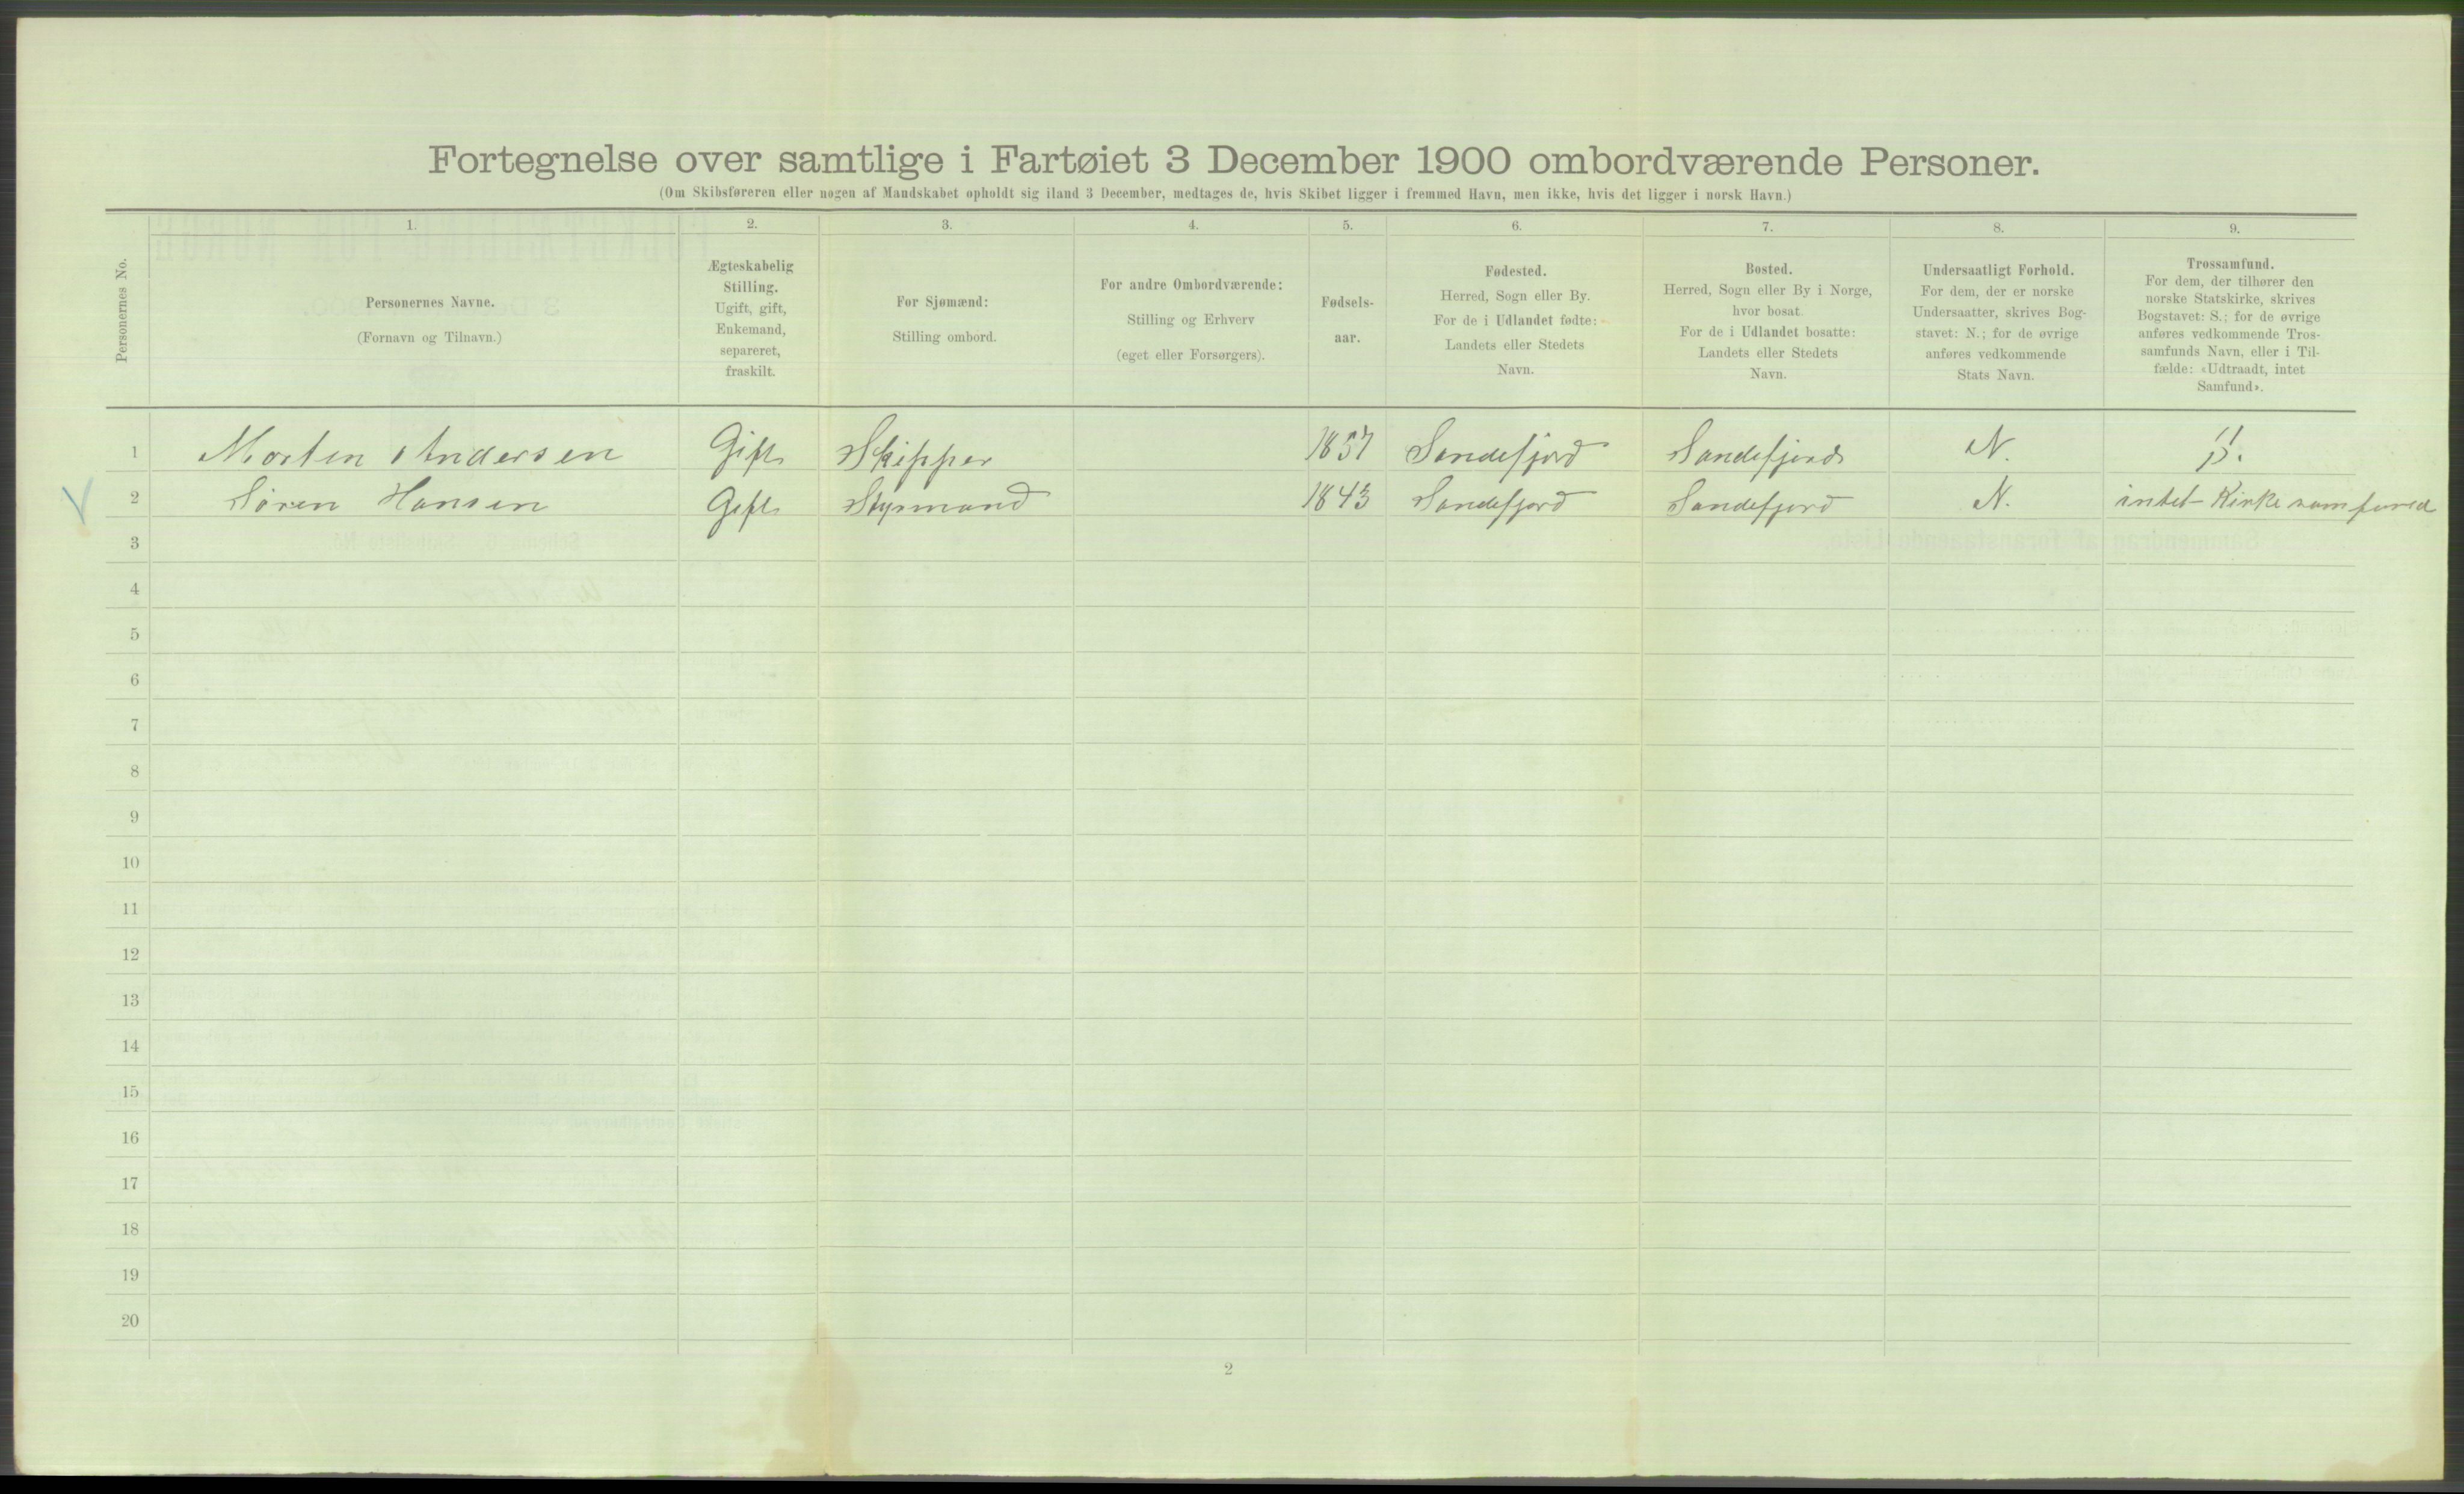 Fortegnelse over samtlige i Fartøiet 3 December 1900 ombordværende Personer.
(Om Skibsføreren eller nogen af Mandskabet opholdt sig iland 3 December, medtages de, hvis Skibet ligger i fremmed Havn, men ikke, hvis det ligger i norsk Havn.)
Personernes No.
1.
Personernes Navne.
(Fornavn og Tilnavn.)
2.
Ægteskabelig
Stilling.
Ugift, gift,
Enkemand,
separeret,
fraskilt.
3.
For Sjømænd:
Stilling ombord.
4.
For andre Ombordværende:
Stilling og Erhverv
(eget eller Forsørgers).
5.
Fødsels-
aar.
6.
Fødested.
Herred, Sogn eller By.
For de i Udlandet fødte:
Landets eller Stedets
Navn.
7.
Bosted.
Herred, Sogn eller By i Norge,
hvor bosat.
For de i Udlandet bosatte:
Landets eller Stedets
Navn.
8.
Undersaatligt Forhold.
For dem, der er norske
Undersaatter, skrives Bog-
stavet: N.; for de øvrige
anføres vedkommende
Stats Navn.
9.
Trossamfund.
For dem, der tilhører den
norske Statskirke, skrives
Bogstavet: S.; for de øvrige
anføres vedkommende Tros-
samfunds Navn, eller i Til-
fælde: «Udtraadt, intet
Samfund».
1 Morten Andersen Gift Skipper 1857 Sandefjord Sandefjord N.
2 Søren Hansen Gift Stymand 1843 Sandefjord Sandefjord N. intet Kirkesamfund
3
4
5
6
7
8
9
10
11
12
13
14
15
16
17
18
19
20
2